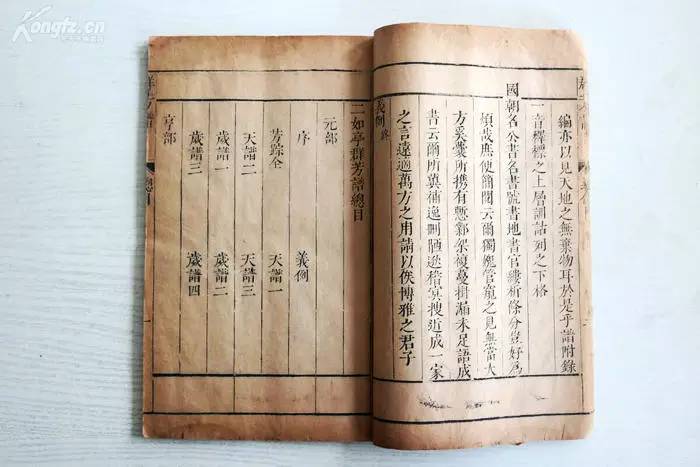 編亦以見天地之無棄物耳於是乎譜附錄
一音釋標之上層訓詁列之下格
國朝名公書名書號書地書官縷析條分豈好為
煩哉庶便簡閱云爾獨愧管窺之見無當大
方奚囊所攜有慙鄴架複蔓掛漏未足語成
書云爾所冀補逸刪陋遠稽冥搜近成一家
之言遠適萬方之用請以俟博雅之君子
義例終
二如亭群芳譜總目
元部
序 義例
芳踪全 天譜一
天譜二 天譜三
歲譜一 歲譜二
歲譜三 歲譜四
亨部
群芳譜 總目 一
Kongfz.cn